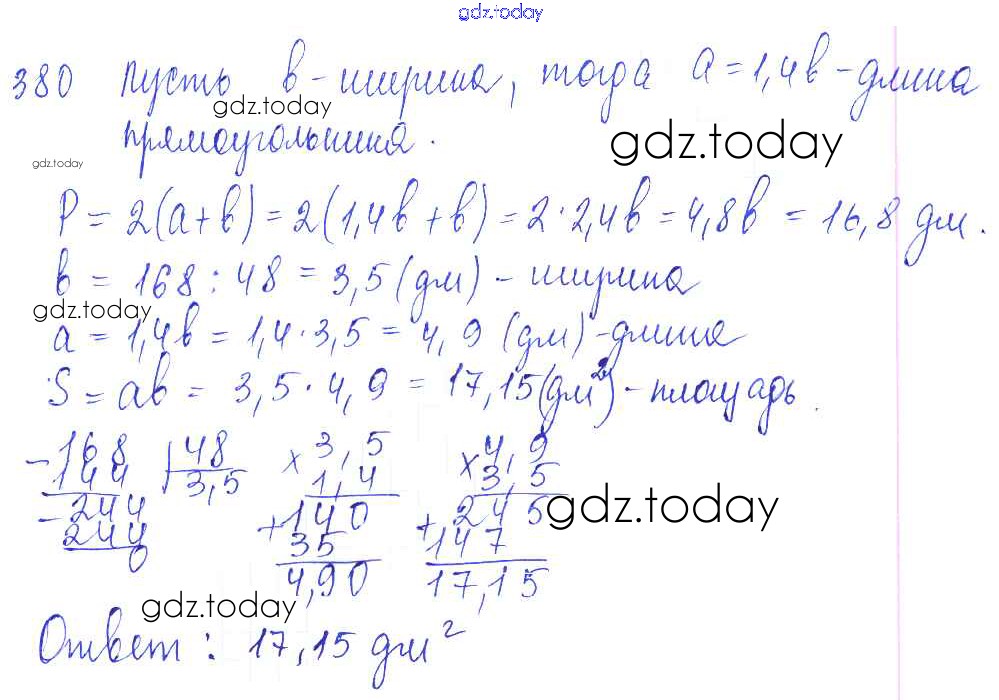 gdz.today
380 Пусть b - ширина, тогда a = 1,4b - длина
gdz.today
прямоугольника.
gdz.today
gdz.today
P = 2(a+b) = 2(1,4b + b) = 2·2,4b = 4,8b = 16,8 дм.
b = 168 : 48 = 3,5 (дм) - ширина
gdz.today
a = 1,4b = 1,4·3,5 = 4,9 (дм) - длина
S = ab = 3,5·4,9 = 17,15 (дм²) - площадь.
-168 48 ×3,5 ×4,9
144 3,5 1,4 3,5
-244 +140 +245
gdz.today
244 35 147
0 4,90 17,15
gdz.today
Ответ: 17,15 дм²